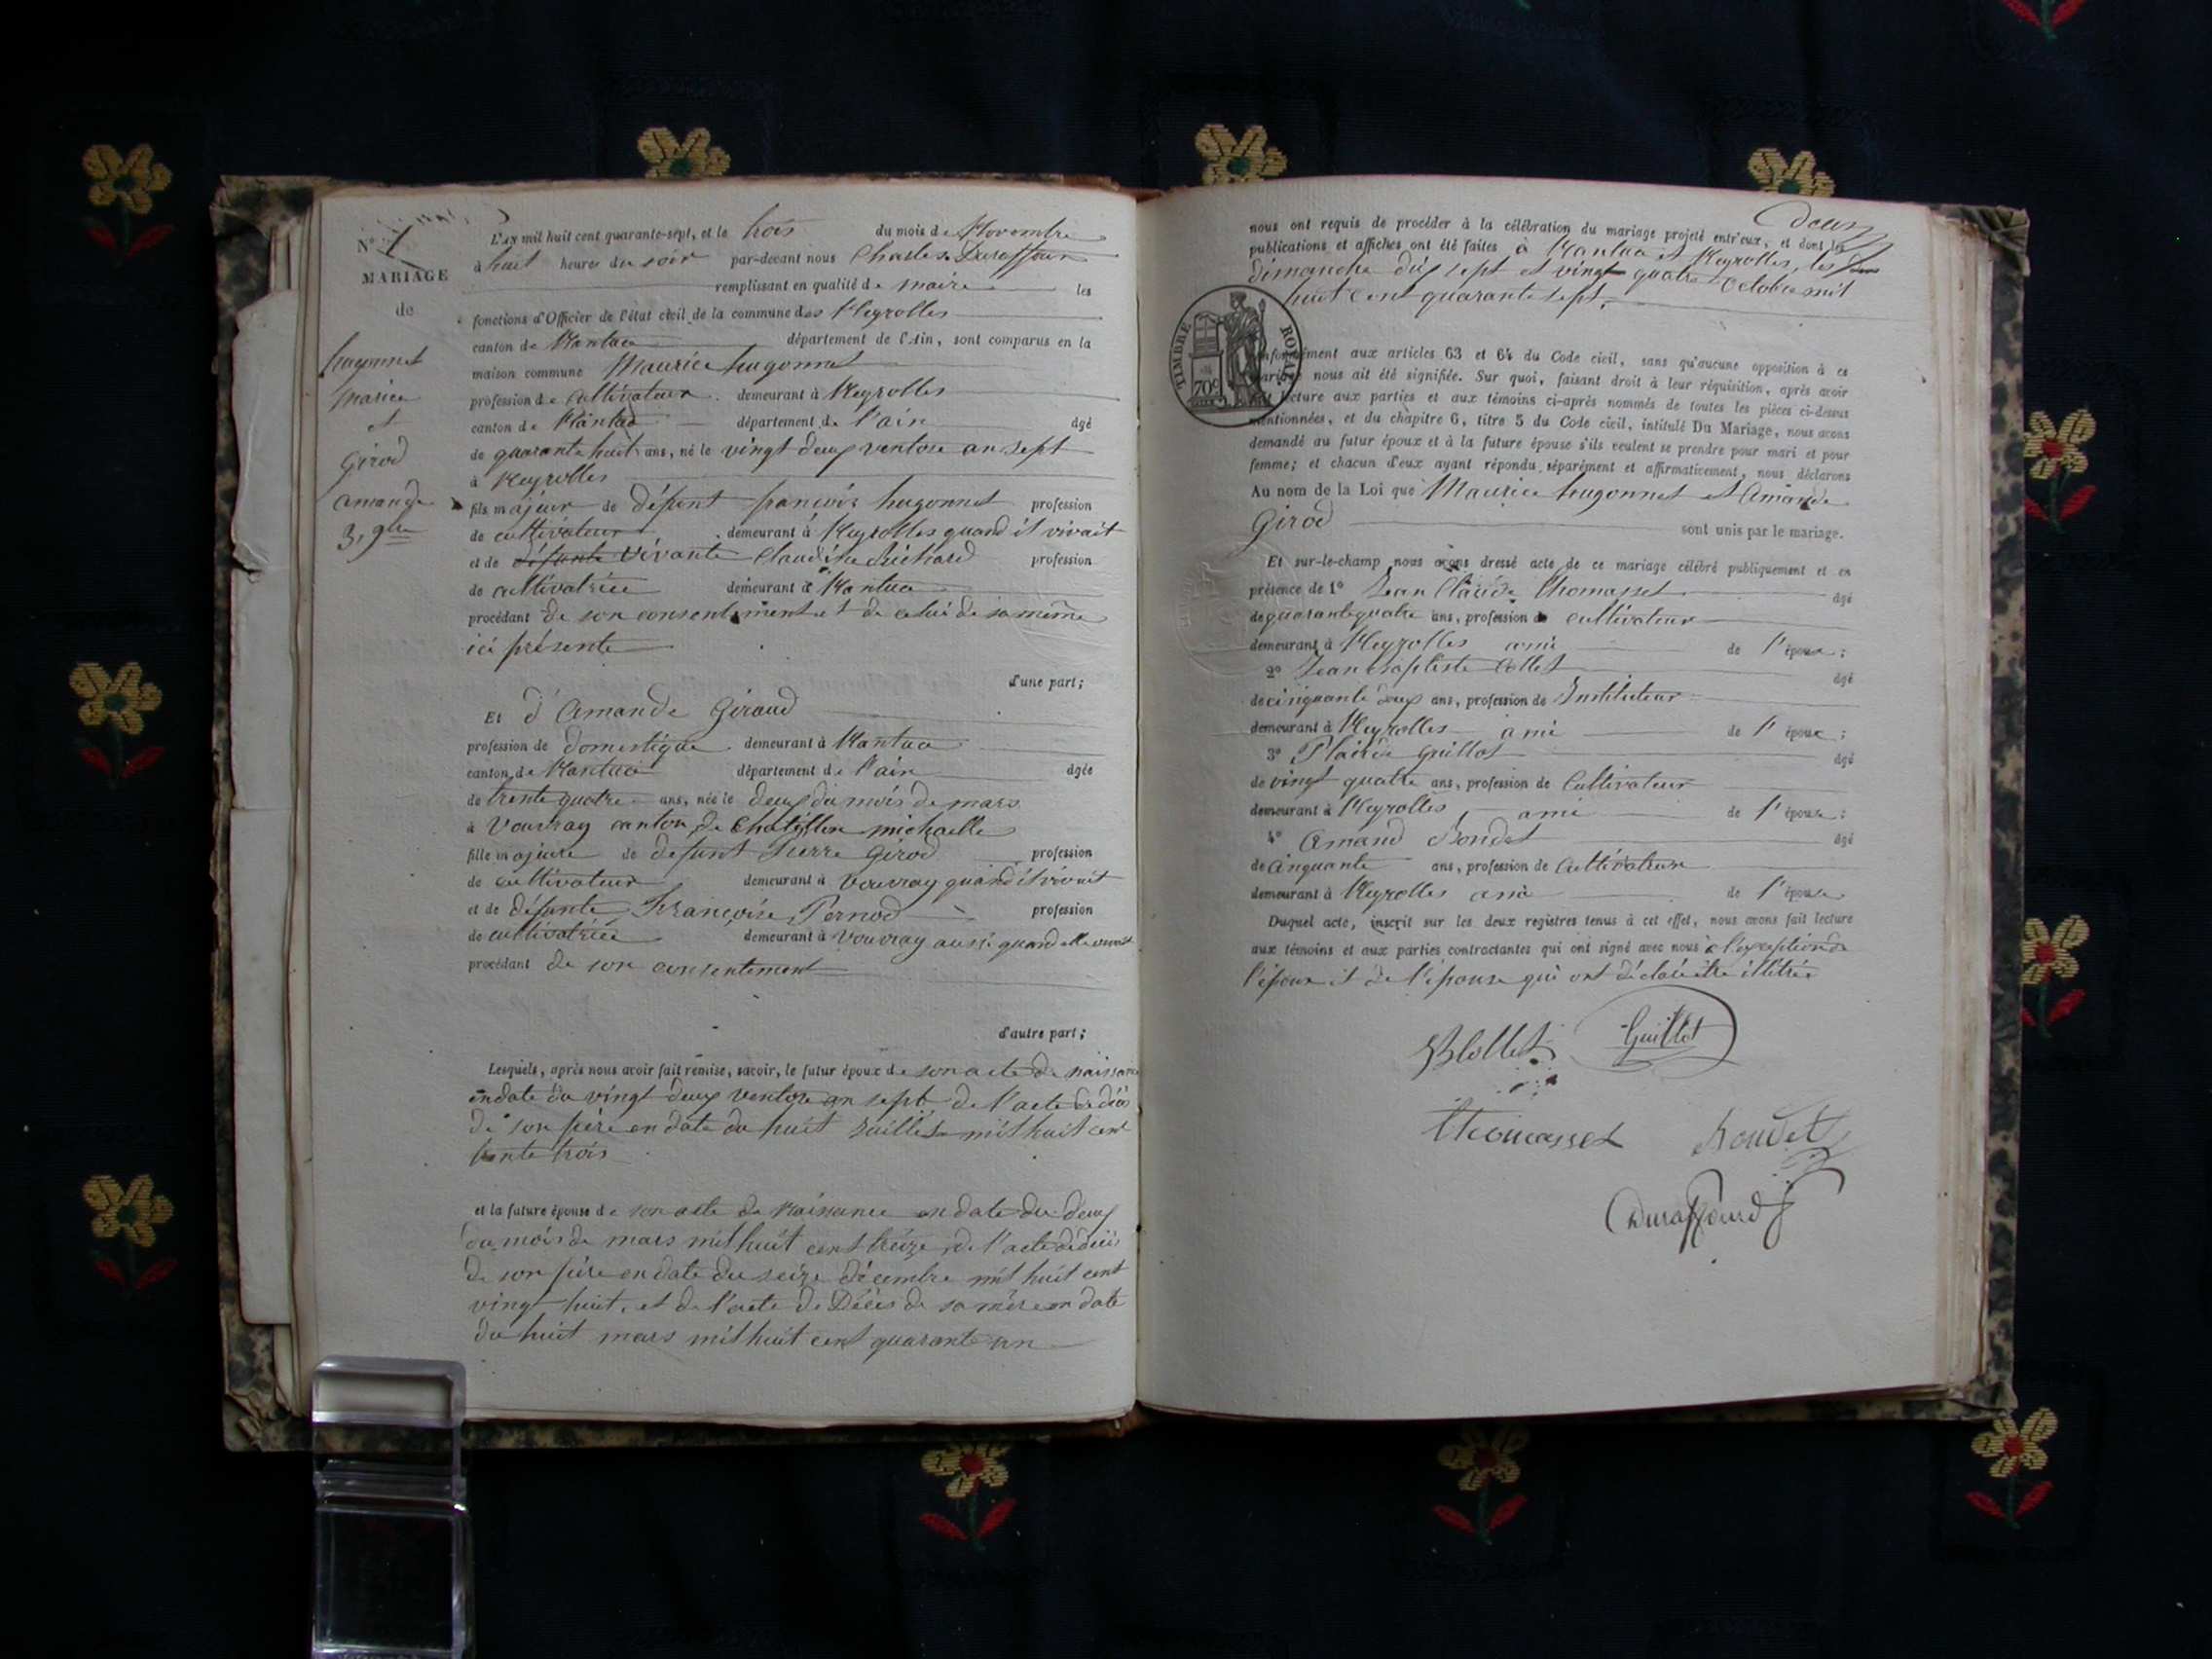 N° 1
MARIAGE
de
hugonnet
Maurice
et
Girod
amande
L'AN mil huit cent quarante-sept, et le trois du mois de Novembre
à huit heures du soir par-devant nous Charles Duraffour
remplissant en qualité de maire les
fonctions d'Officier de l'état civil de la commune des Neyrolles
canton de Nantua département de l'Ain, sont comparus en la
maison commune Maurice hugonnet
profession de cultivateur demeurant à Neyrolles
canton de Nantua département de l'ain âgé
de quarante huit ans, né le vingt deux ventose an sept
à Neyrolles
fils majeur de défunt françois hugonnet profession
de cultivateur demeurant à Neyrolles quand il vivait
et de défunte vivante Claudine Richard profession
de cultivatrice demeurant à Nantua
procédant de son consentement et de celui de sa mère
ici présente
d'une part;
Et d'Amande Giroud
profession de domestique demeurant à Nantua
canton de Nantua département de l'ain âgée
de trente quatre ans, née le deux du mois de mars
à Vouvray canton de Chatillon michaille
fille majeure de defunt Pierre Girod profession
de cultivateur demeurant à Vouvray quand il vivait
et de défunte Françoise Pernod profession
de cultivatrice demeurant à Vouvray aussi quand elle vivait
procédant de son consentement
d'autre part;
Lesquels, après nous avoir fait remise, savoir, le futur époux de son acte de naissance
en date du vingt deux ventose an sept de l'acte de décès
de son père en date du huit Juillet mil huit cent
trente trois
et la future épouse de son acte de Naissance en date du deux
du mois de mars mil huit cent treize, de l'acte de décès
de son père en date du seize décembre mil huit cent
vingt huit, et de l'acte de Décès de sa mère en date
du huit mars mil huit cent quarante un
nous ont requis de procéder à la célébration du mariage projeté entr'eux, et dont les deux
publications et affiches ont été faites à Nantua et Neyrolles, les
dimanche dix sept et vingt quatre Octobre mil
huit cent quarante sept.
TIMBRE ROYAL
70c
Conformément aux articles 63 et 64 du Code civil, sans qu'aucune opposition à ce
mariage nous ait été signifiée. Sur quoi, faisant droit à leur réquisition, après avoir
fait lecture aux parties et aux témoins ci-après nommés de toutes les pièces ci-dessus
mentionnées, et du chapitre 6, titre 5 du Code civil, intitulé Du Mariage, nous avons
demandé au futur époux et à la future épouse s'ils veulent se prendre pour mari et pour
femme; et chacun d'eux ayant répondu séparément et affirmativement, nous déclarons
Au nom de la Loi que Maurice hugonnet et Amande
Girod sont unis par le mariage.
Et sur-le-champ nous avons dressé acte de ce mariage célébré publiquement et en
présence de 1° Jean Claude Thomasset âgé
de quarante quatre ans, profession de cultivateur
demeurant à Neyrolles ami de l'époux;
2° Jean baptiste Collet âgé
de cinquante deux ans, profession de Instituteur
demeurant à Neyrolles ami de l'époux;
3° Guillot âgé
de vingt quatre ans, profession de Cultivateur
demeurant à Neyrolles, ami de l'épouse;
4° Amand Roudet âgé
de Cinquante ans, profession de Cultivateur
demeurant à Neyrolles ami de l'épouse
Duquel acte, inscrit sur les deux registres tenus à cet effet, nous avons fait lecture
aux témoins et aux parties contractantes qui ont signé avec nous à l'exception de
l'époux et de l'épouse qui ont déclaré être illitrés
Collet Guillot
Thomasset Roudet
Duraffourd